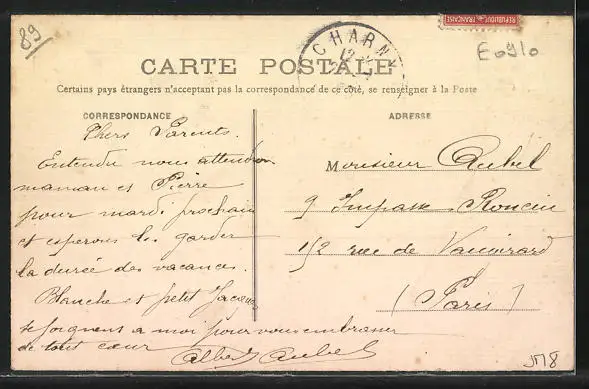 89
RÉPUBLIQUE FRANÇAISE
CHARNY
12
E0910
CARTE POSTALE
Certains pays étrangers n'acceptant pas la correspondance de ce côté, se renseigner à la Poste
CORRESPONDANCE
Chers Parents.
Entendu nous attendons
maman et Pierre
pour mardi prochain
et esperons les garder
la durée des vacances.
Blanche et petit Jacques
se joignent a moi pour vous embrasser
de tout cœur Albert Aubel
ADRESSE
Monsieur Aubel
9 Impasse Ronsin
152 rue de Vaugirard
(Paris)